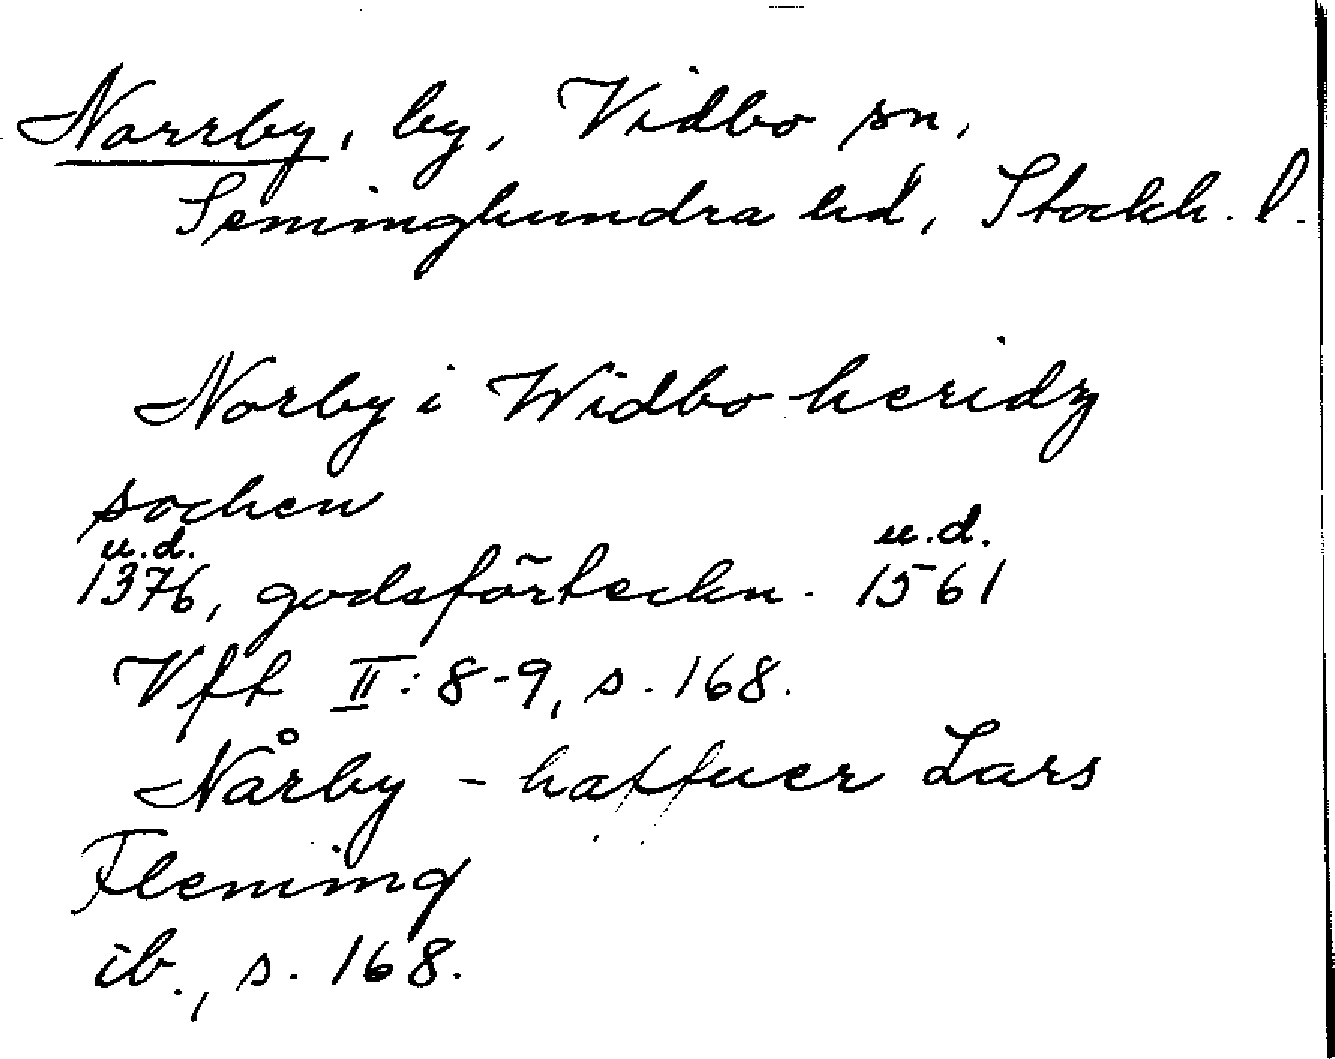 Norrby, by, Vidbo sn,
Seminghundra hd, Stockh. l.
Norby i Widbo heridz
sochen
u.d. u.d.
1376, godsförteckn. 1561
Vff II: 8-9, s. 168.
Nårby - haffuer Lars
Fleming
ib., s. 168.